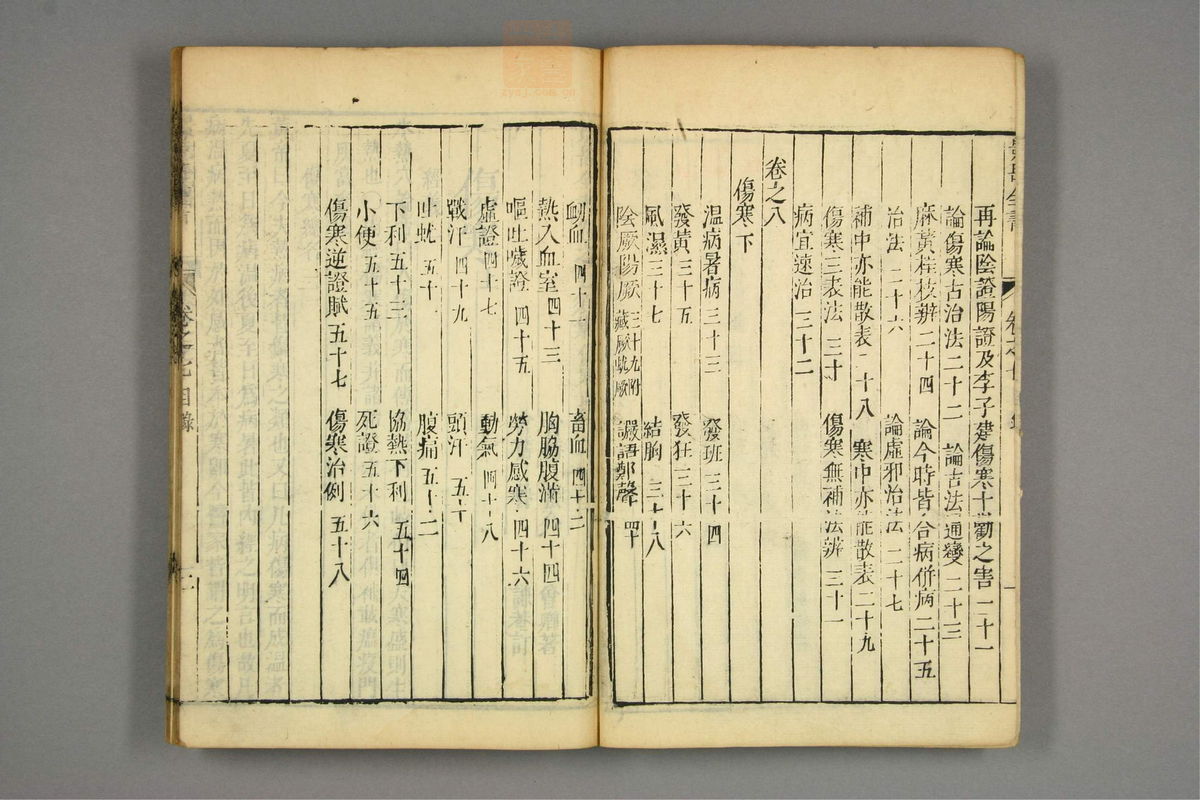 再論陰證陽證及李子建傷寒十勸之害 二十一
論傷寒古治法 二十二 論古法通變 二十三
麻黃桂枝辨 二十四 論今時皆合病併病 二十五
治法 二十六 論虛邪治法 二十七
補中亦能散表 二十八 寒中亦能散表 二十九
傷寒三表法 三十 傷寒無補法辨 三十一
病宜速治 三十二
卷之八
傷寒下
溫病暑病 三十三 發斑 三十四
發黃 三十五 發狂 三十六
風濕 三十七 結胸 三十八
陰厥陽厥 三十九附藏厥蚘厥 讝語鄭聲 四十
衂血 四十一 畜血 四十二
熱入血室 四十三 胸脇腹滿 四十四
嘔吐噦證 四十五 勞力感寒 四十六
虛證 四十七 動氣 四十八
戰汗 四十九 頭汗 五十
吐蚘 五十一 腹痛 五十二
下利 五十三 協熱下利 五十四
小便 五十五 死證 五十六
傷寒逆證賦 五十七 傷寒治例 五十八
卷之七目錄
二
zysj.com.cn